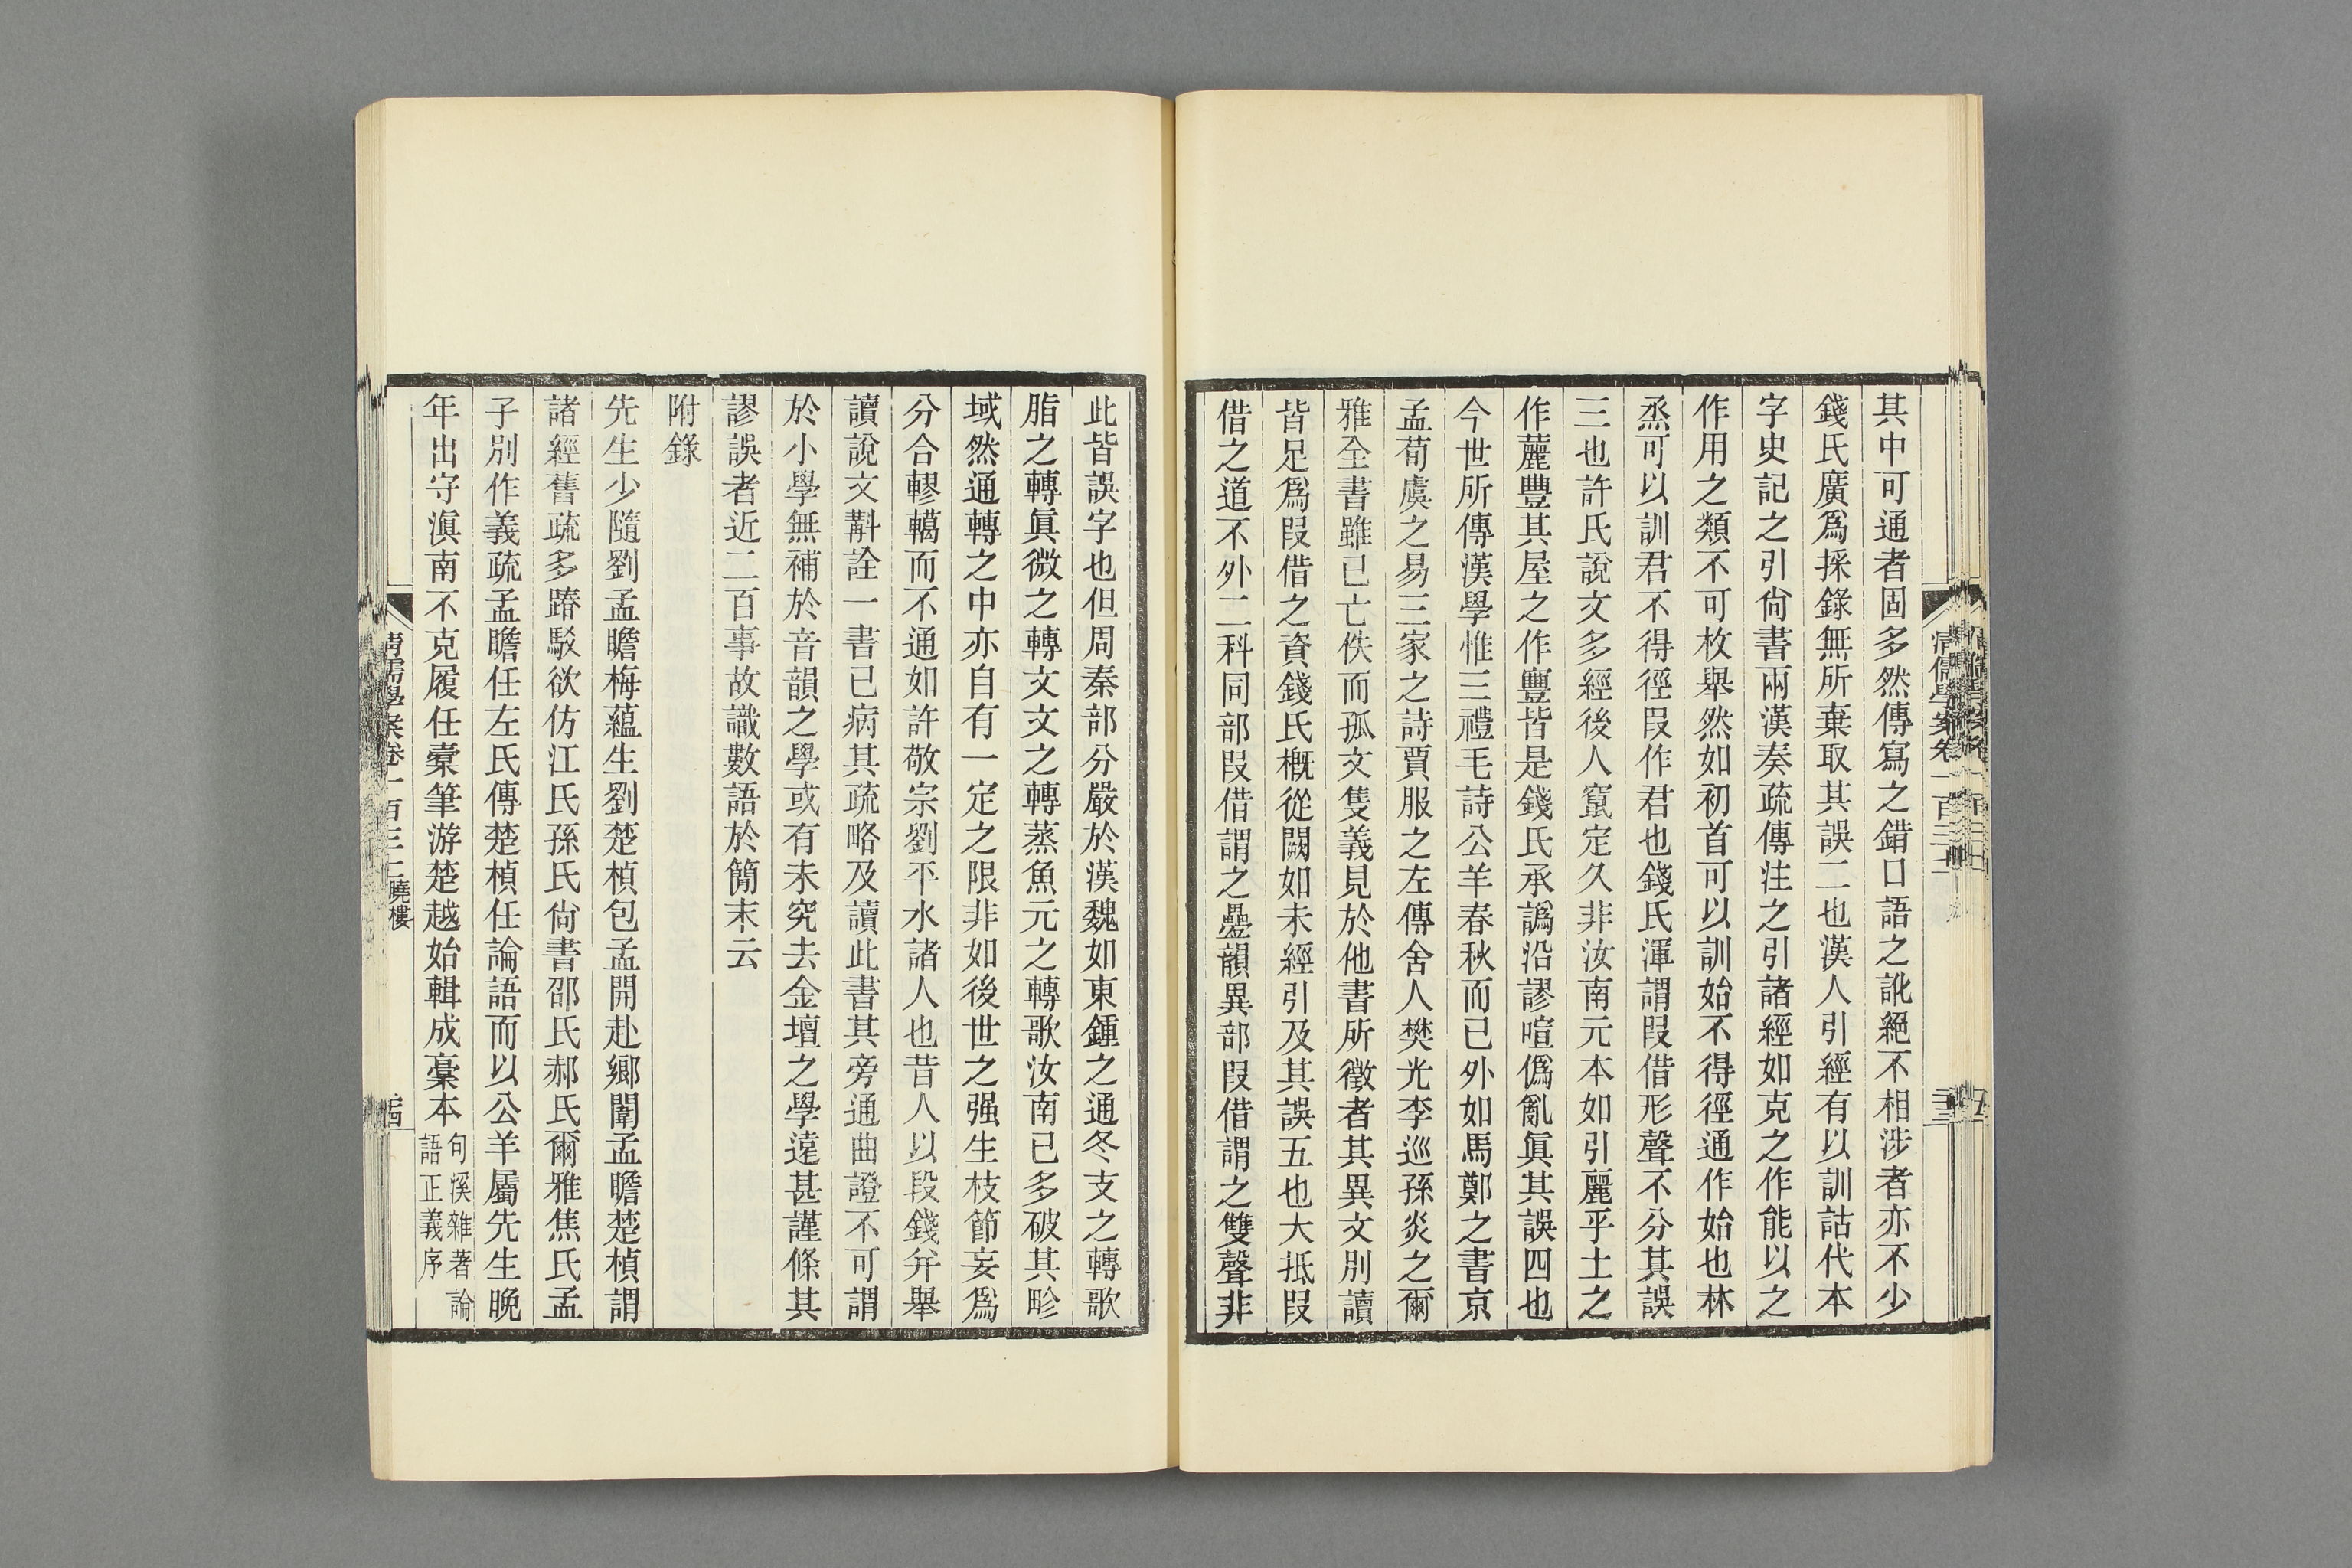 其中可通者固多然傳寫之錯口語之訛絕不相涉者亦不少
錢氏廣爲採錄無所棄取其誤二也漢人引經有以訓詁代本
字史記之引尙書兩漢奏疏傳注之引諸經如克之作能以之
作用之類不可枚舉然如初首可以訓始不得徑通作始也林
烝可以訓君不得徑叚作君也錢氏渾謂叚借形聲不分其誤
三也許氏說文多經後人竄定久非汝南元本如引麗乎土之
作䕻豐其屋之作寷皆是錢氏承譌沿謬喧僞亂眞其誤四也
今世所傳漢學惟三禮毛詩公羊春秋而已外如馬鄭之書京
孟荀虞之易三家之詩賈服之左傳舍人樊光李巡孫炎之爾
雅全書雖已亡佚而孤文隻義見於他書所徵者其異文別讀
皆足爲叚借之資錢氏槪從闕如未經引及其誤五也大抵叚
借之道不外二科同部叚借謂之疊韻異部叚借謂之雙聲非
清儒學案卷一百三十二
此皆誤字也但周秦部分嚴於漢魏如東鍾之通冬支之轉歌
脂之轉眞微之轉文文之轉蒸魚元之轉歌汝南已多破其畛
域然通轉之中亦自有一定之限非如後世之强生枝節妄爲
分合轇轕而不通如許敬宗劉平水諸人也昔人以段錢幷舉
讀說文斠詮一書已病其疏略及讀此書其旁通曲證不可謂
於小學無補於音韻之學或有未究去金壇之學遠甚謹條其
謬誤者近二百事故識數語於簡末云
附錄
先生少隨劉孟瞻梅蘊生劉楚楨包孟開赴鄉闈孟瞻楚楨謂
諸經舊疏多踳駁欲仿江氏孫氏尙書邵氏郝氏爾雅焦氏孟
子別作義疏孟瞻任左氏傳楚楨任論語而以公羊屬先生晚
年出守滇南不克履任槖筆游楚越始輯成槀本句溪雜著論
語正義序
清儒學案卷一百三十二 曉樓